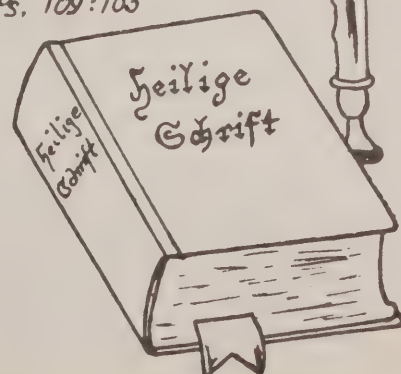 109:103
Heilige
Schrift
Heilige
Schrift